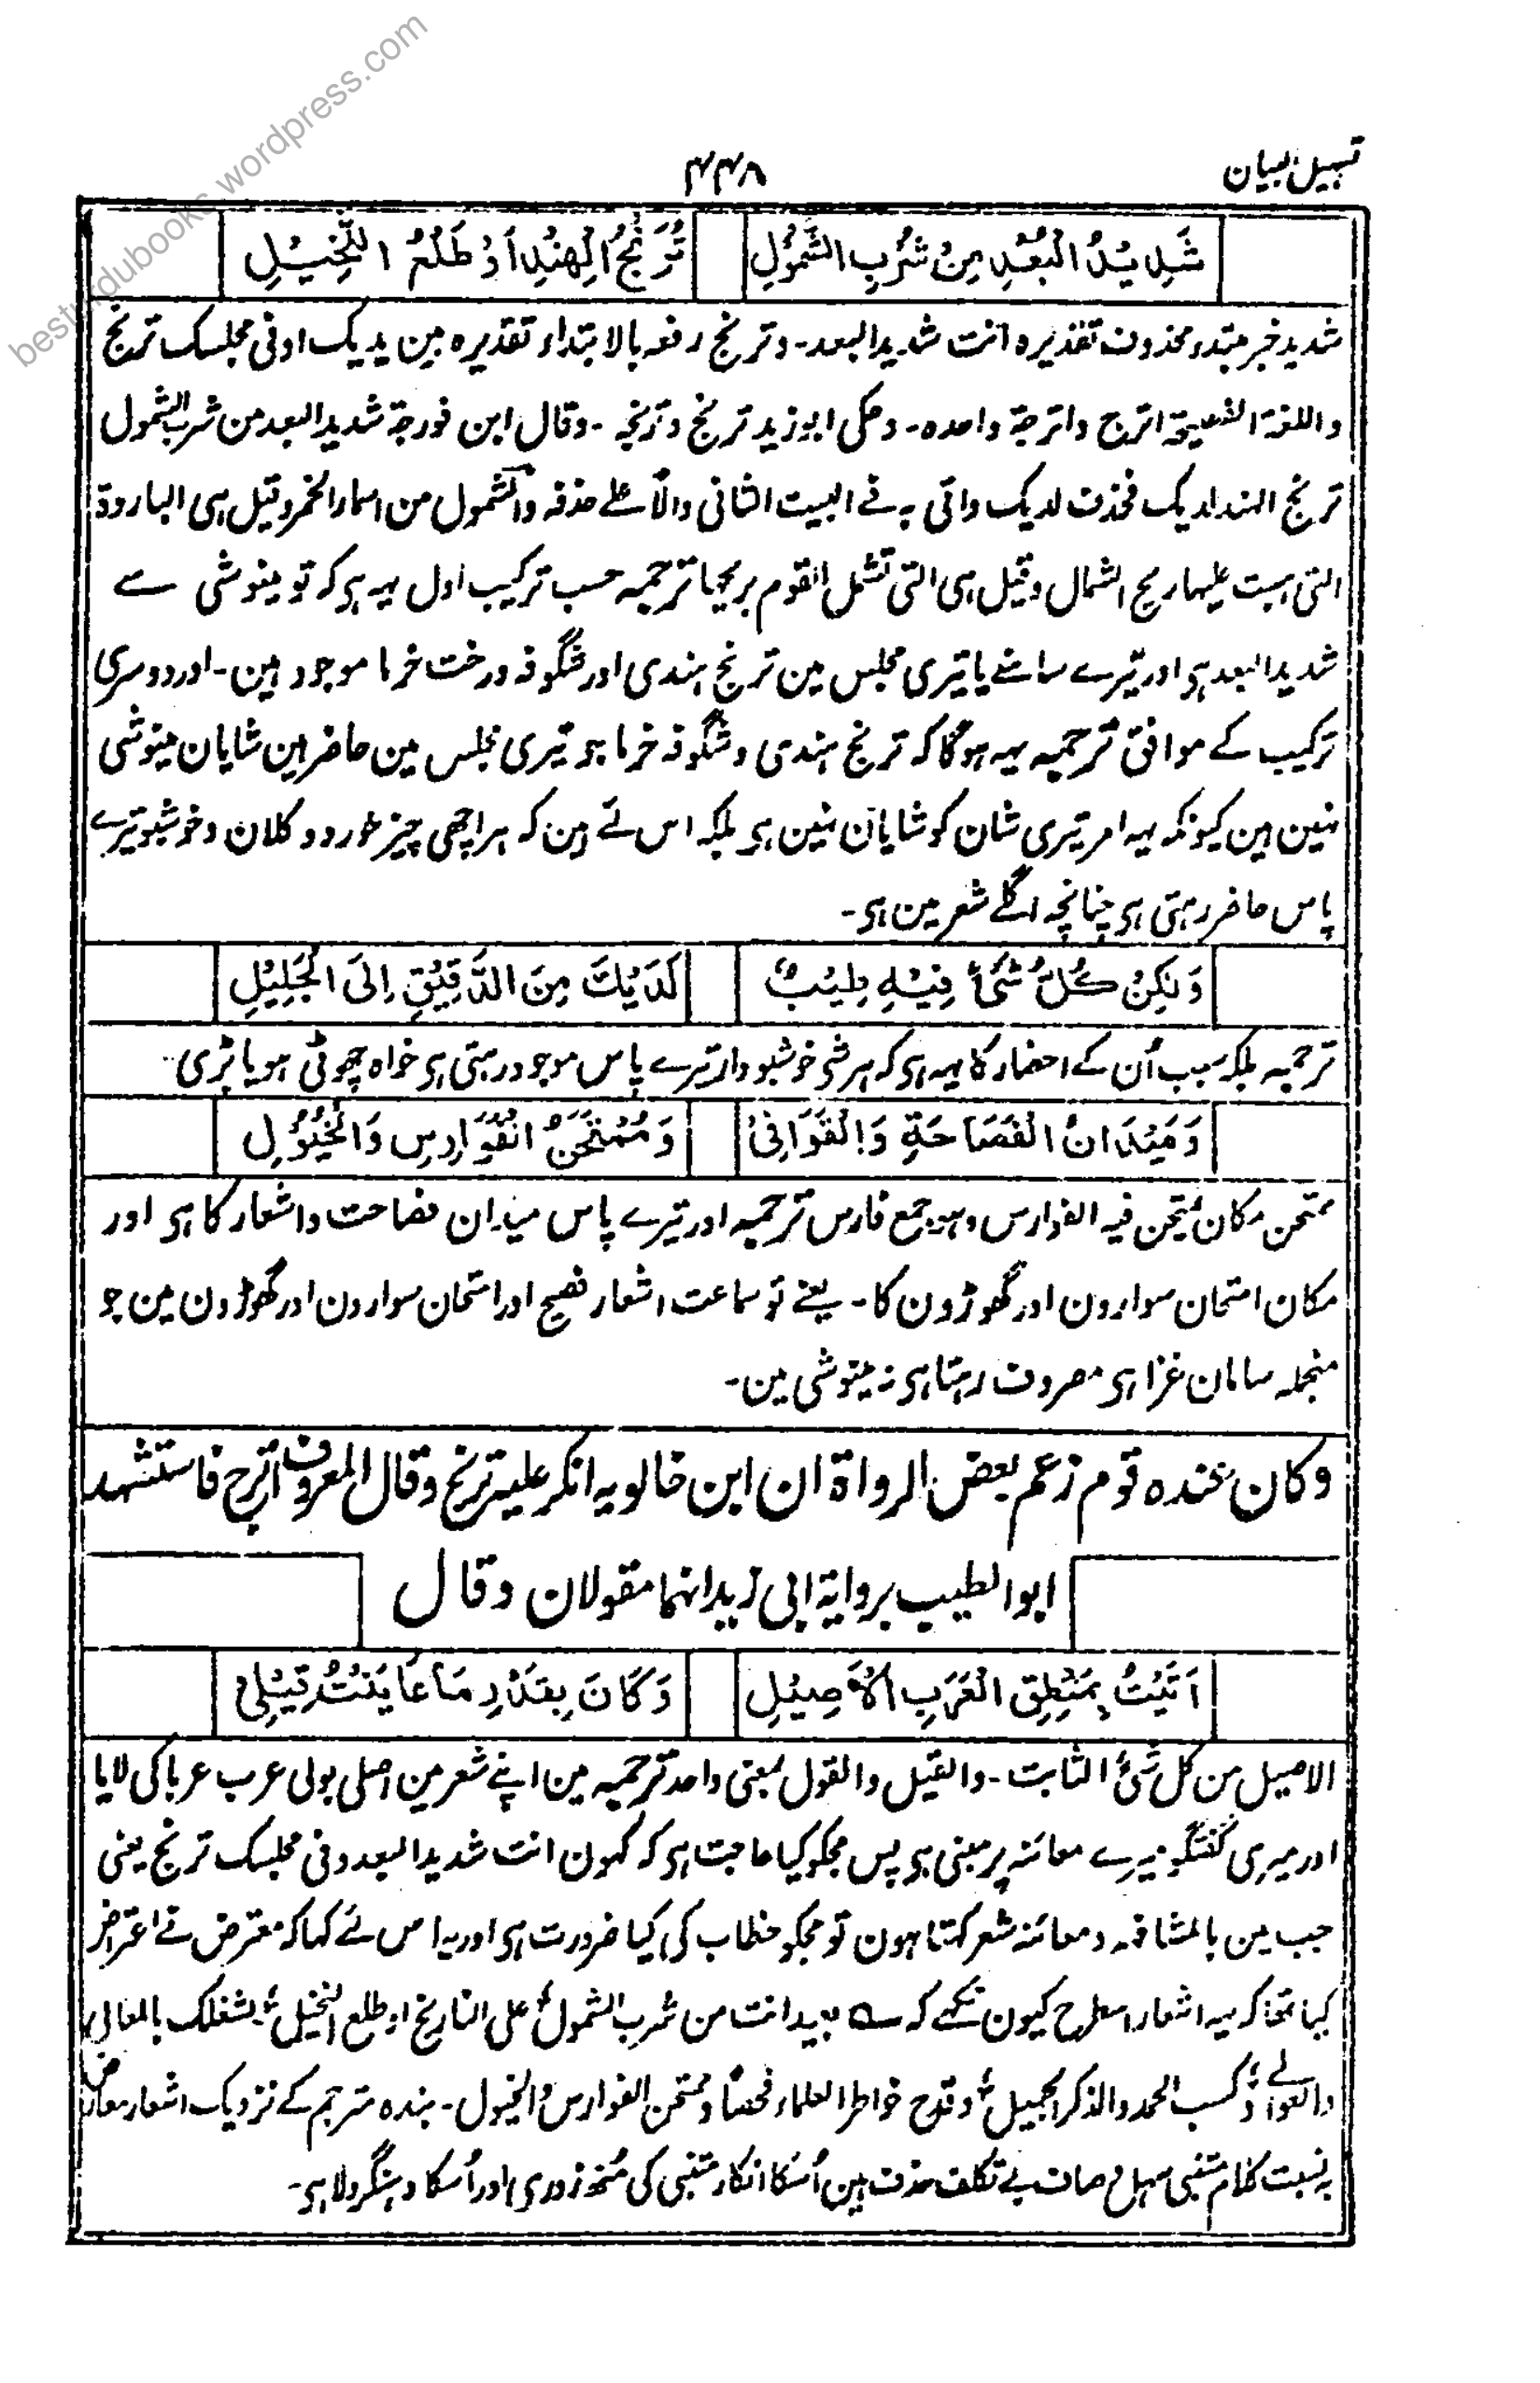 besturdubooks.wordpress.com
تسہیل البیان
۴۴۸
شَدِيْدُ الْبُعْدِ مِنْ شُرْبِ الشَّمُوْلِ تُرُنْجُ الْهِنْدِ اَوْ طَلْعُ النَّخِيْلِ
شدید خبر مبتدء محذوف تقدیرہ انت شدید البعد۔ وترنج رفعہ بالابتداء تقدیرہ بین یدیک او فی مجلسک ترنج
واللغۃ الفصیحۃ اترج واترجۃ واحدہ۔ وحکی ابو زید ترنج وترنجہ۔ وقال ابن فورجۃ شدید البعد من شرب الشمول
ترنج الہند لدیک فحذف لدیک واتی بہ فے البیت الثانی دالاً علے حذفہ والشمول من اسماء الخمر وقیل ہی الباردۃ
التی ہبت علیہا ریح الشمال وقیل ہی التی تشمل القوم بریحہا ترجمہ حسب ترکیب اول یہہ ہی کہ تو مینوشی سے
شدید البعد ہی اور تیرے سامنے یا تیری مجلس مین ترنج ہندی اور شگوفہ درخت خرما موجود ہین۔ اور دوسری
ترکیب کے موافق ترجمہ یہہ ہوگا کہ ترنج ہندی و شگوفہ خرما جو تیری مجلس مین حاضر ہین شایان مینوشی
نہین ہین کیونکہ یہہ امر تیری شان کو شایان نہین ہی بلکہ اس لئے ہین کہ ہر اچھی چیز خورد و کلان و خوشبو تیرے
پاس حاضر رہتی ہی چنانچہ اگلے شعر مین ہی۔
وَلٰكِنْ كُلُّ شَىْءٍ فِيْهِ طِيْبٌ لَدَيْكَ مِنَ الدَّقِيْقِ اِلَى الْجَلِيْلِ
ترجمہ بلکہ سبب اُن کے احضار کا یہہ ہی کہ ہر شی خوشبودار تیرے پاس موجود رہتی ہی خواہ چھوٹی ہو یا بڑی۔
وَمَيْدَانُ الْفَصَاحَةِ وَالْقَوَافِىْ وَمُمْتَحَنُ الْفَوَارِسِ وَالْخُيُوْلِ
ممتحن مکان یمتحن فیہ الفوارس وہو جمع فارس ترجمہ اور تیرے پاس میدان فصاحت و اشعار کا ہی اور
مکان امتحان سوارون اور گھوڑون کا۔ یعنے تو سماعت اشعار فصیح اور امتحان سوارون اور گھوڑون مین جو
منجملہ سامان غزا ہی مصروف رہتا ہی نہ مینوشی مین۔
وکان عندہ قوم زعم بعض الرواۃ ان ابن خالویہ انکر علیہ ترنج وقال المعروف اترج فاستشہد
ابو الطیب بروایۃ ابی زید انہما مقولان وقال
اَتَيْتُ بِمَنْطِقِ الْعَرَبِ الْاَصِيْلِ وَكَانَ بِقَدْرِ مَا عَايَنْتُ قِيْلِىْ
الاصیل من کل شیٔ الثابت۔ والقیل والقول بمعنی واحد ترجمہ مین اپنے شعر مین اصلی بولی عرب عربا کی لایا
اور میری گفتگو میرے معائنہ پر مبنی ہی پس مجکو کیا حاجت ہی کہ کہون انت شدید البعد وفی مجلسک ترنج یعنی
جب مین بالمشافہہ و معائنہ شعر کہتا ہون تو مجکو خطاب کی کیا ضرورت ہی اور یہ اس لئے کہا کہ معترض نے اعتراض
کیا تھا کہ یہہ اشعار اسطرح کیون نکہے کہ ؎ بعید انت من شرب الشمول علی النارنج او طلع النخیل لشغلک بالمعالی
والعوالے وکسب الحمد والذکر الجمیل وقدح خواطر العلماء فحصاً وممتحن الفوارس والخیول۔ بندہ مترجم کے نزدیک اشعار معارض
بہ نسبت کلام متنبی سہل صاف بے تکلف حذف ہین اُسکا انکار متنبی کی مُنہ زوری اور اُسکا دہینگڑولا ہی۔